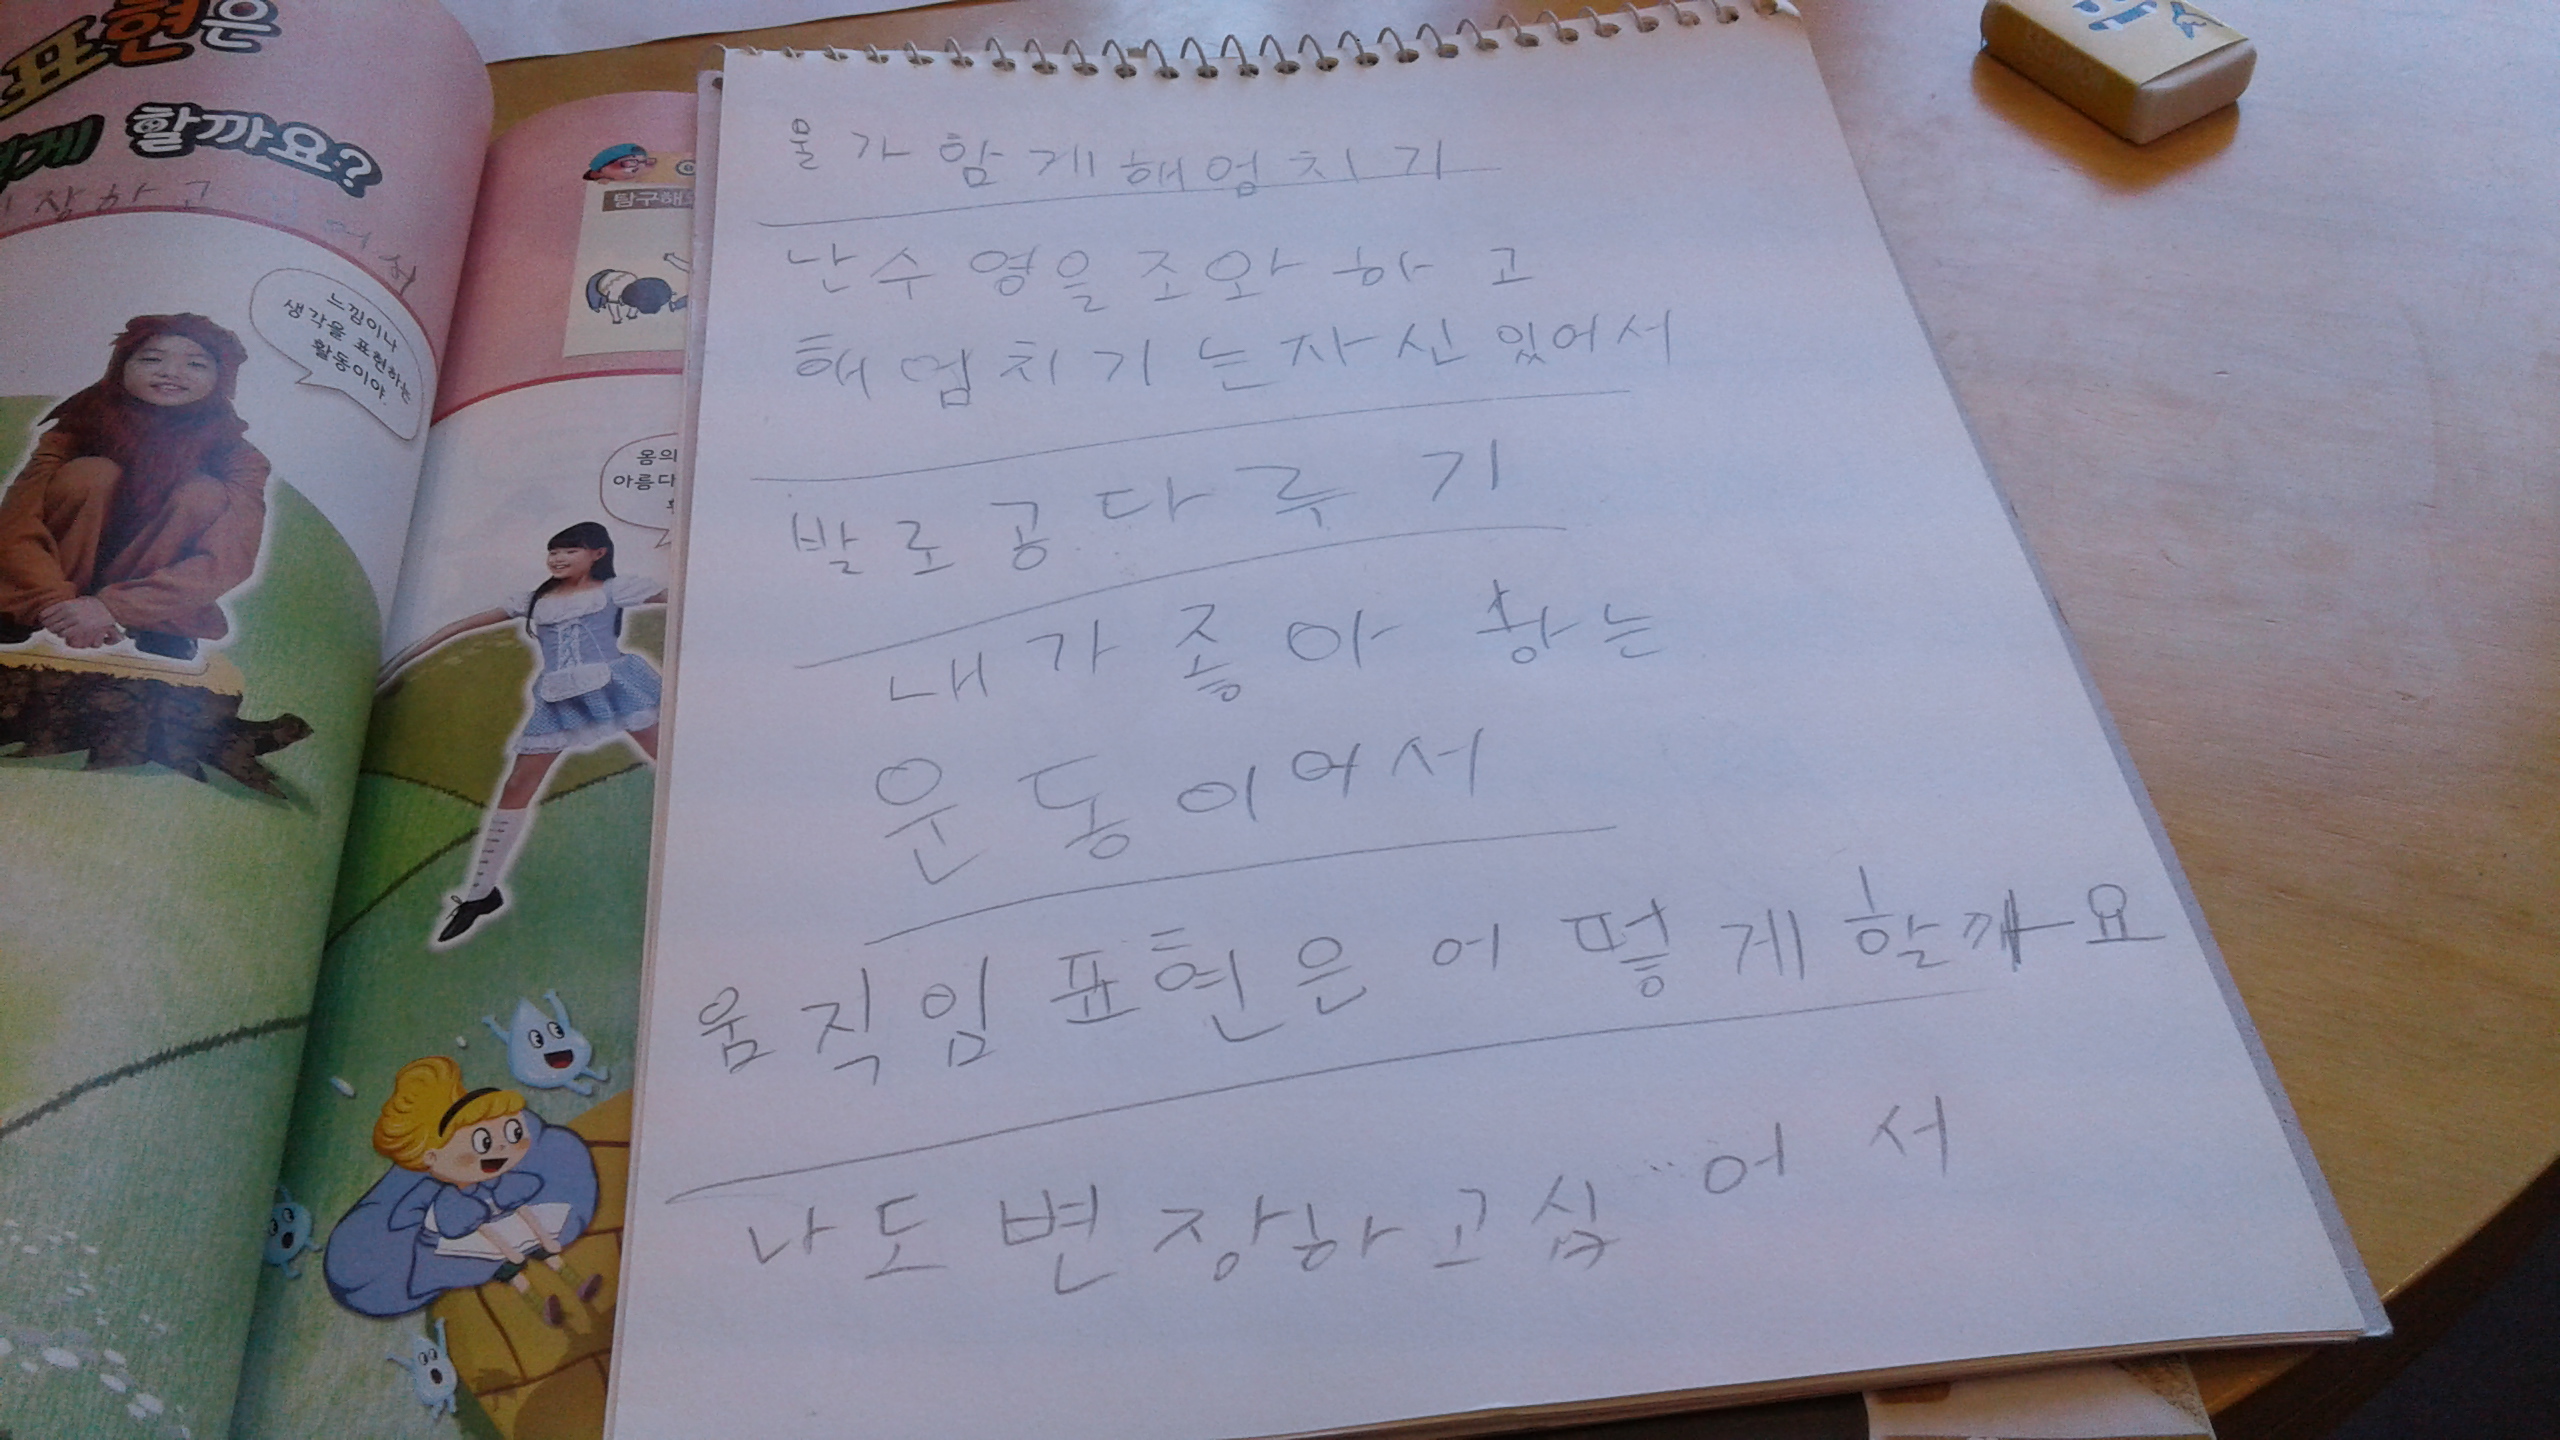 표현은
게 할까요?
장하고
느낌이나
생각을 표현하는
활동이야.
탐구해
몸의
아름다
물가 함게 해엄치기
난 수영을 조와하고
해엄치기는 자신 있어서
발로 공 다루기
내가 좋아 하는
운동이어서
움직임 표현은 어떻게 할까요
나도 변장하고 십어서